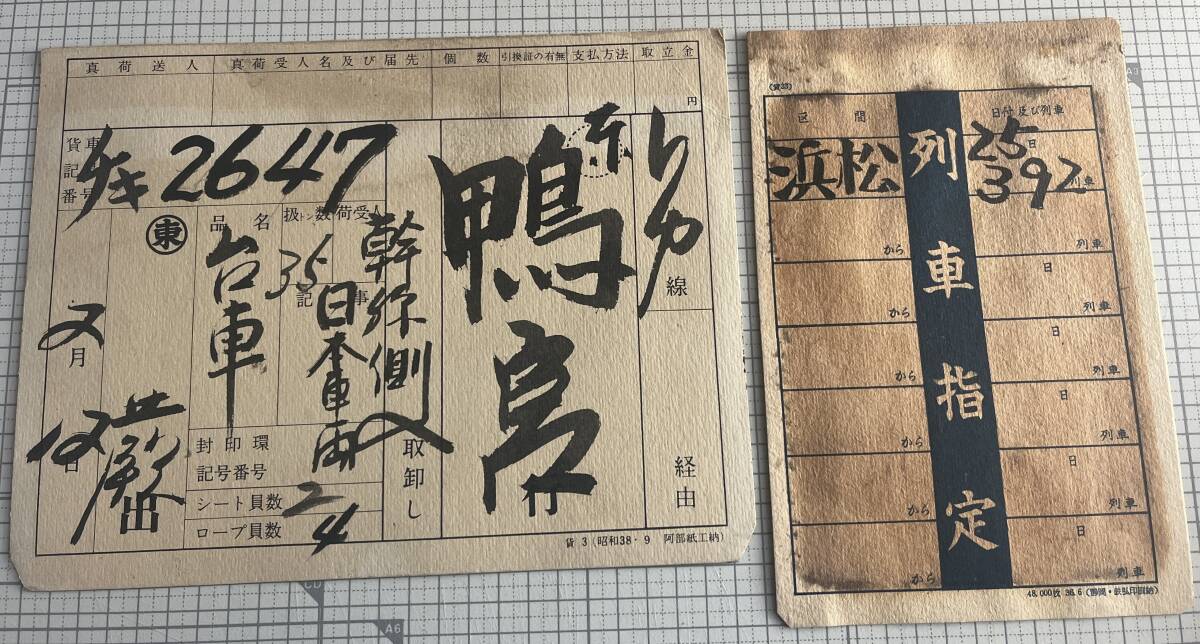 真荷送人 真荷受人名及び届先 個数 引換証の有無 支払方法 取立金
円
貨車記号番号
チキ2647
東
品名
台車
扱トン数
35
荷受人
記事
日本車両
幹線側入
取卸し
鴨宮
行
東
線
経由
又月
12日
出
封印環記号番号
シート員数
2
ロープ員数
4
貨 3 (昭和38・9 阿部紙工納)
(貨33)
区間
日付及び列車
列車指定
浜松
25日
392列車
から 日 列車
から 日 列車
から 日 列車
から 日 列車
から 日 列車
から 日 列車
48,000枚 36.6